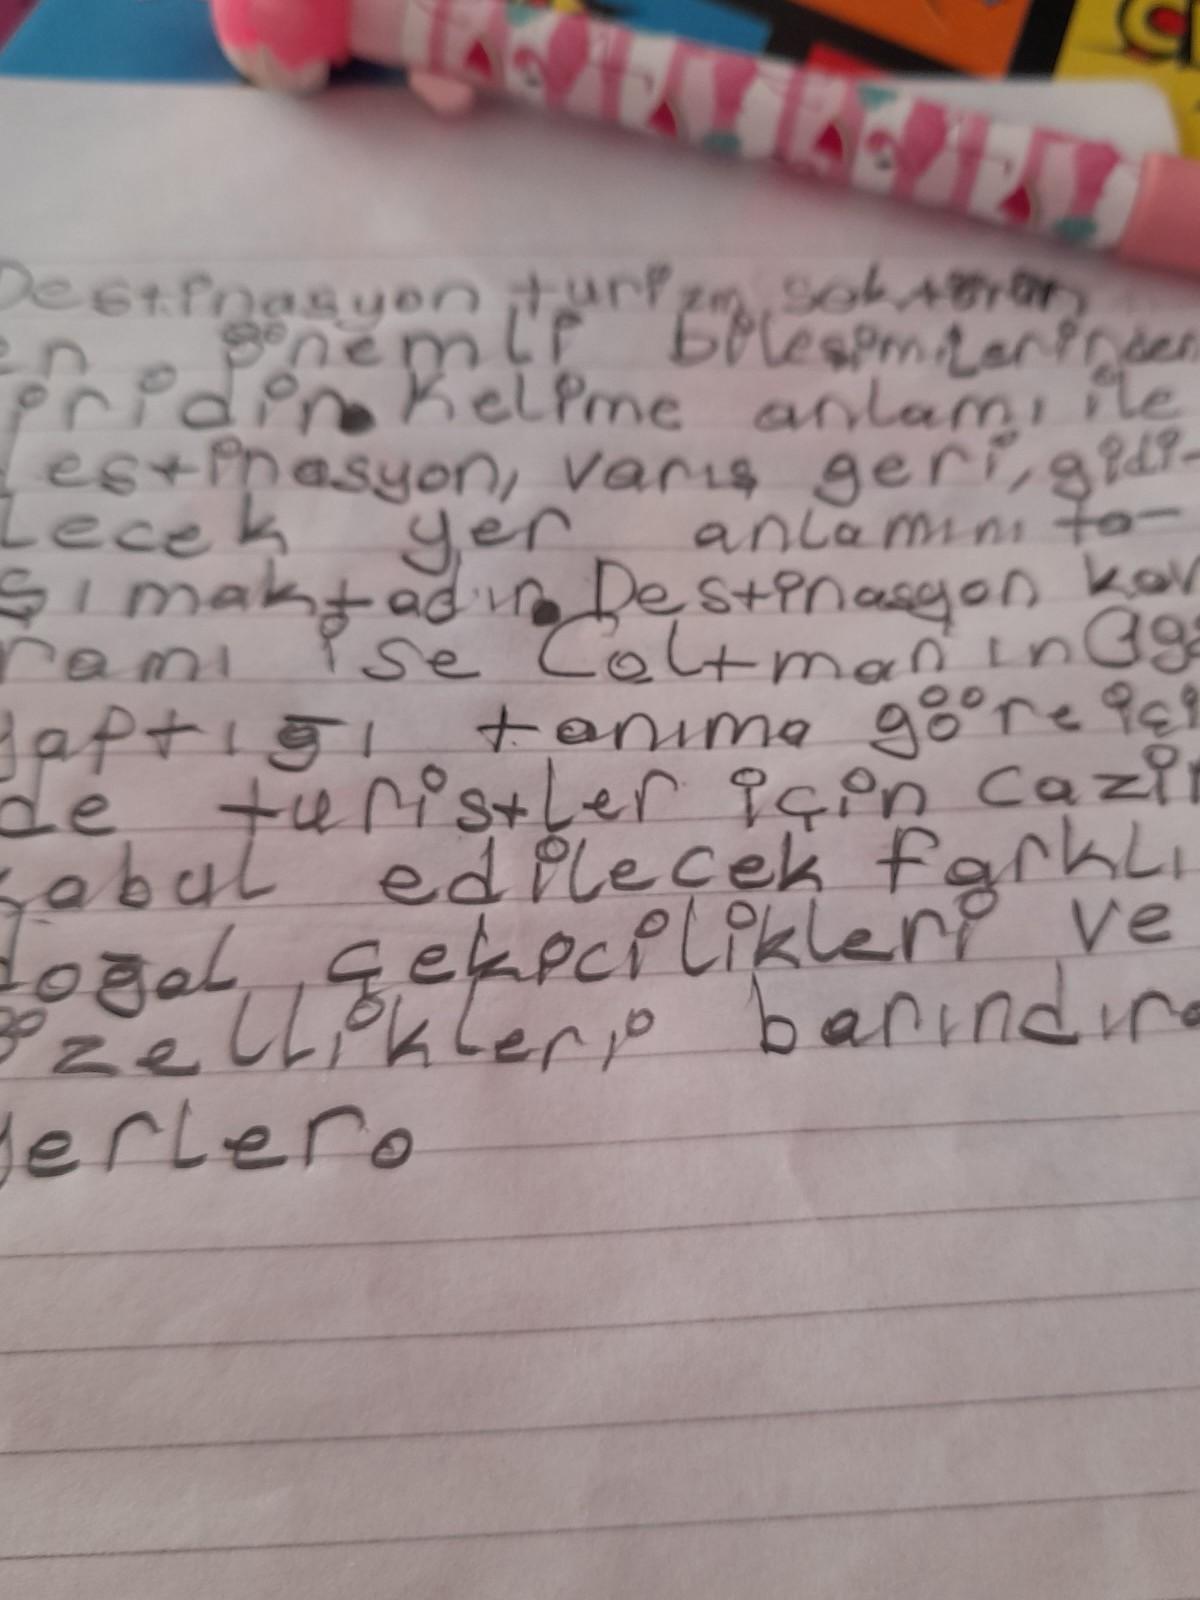 Destinasyon turizm sektörün
en önemli bileşimilerinden
iridir. Kelime anlamı ile
destinasyon, varış geri, gidi-
lecek yer anlamını ta-
şımaktadır. Destinasyon kav
ramı ise Coltman ın
yaptığı tanıma gööre içi
de turistler için cazir
kabul edilecek farklı
doğal çekicilikleri ve
özellikleri barındıra
yerler.